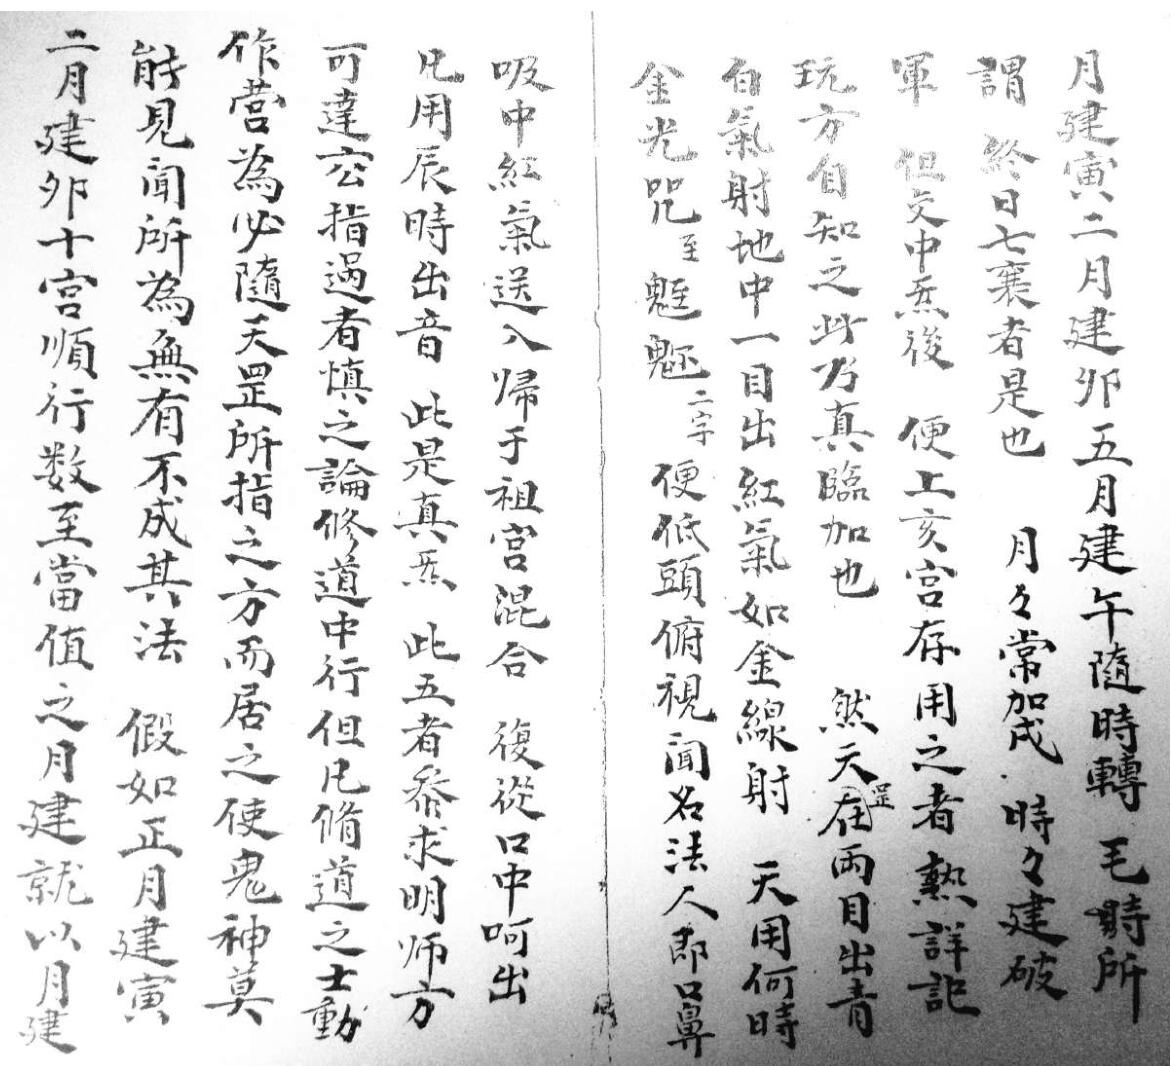 月建寅二月建卯五月建午隨時轉毛時所
謂 終日七襄者是也 月々常加戌 時々建破
軍 但交中炁後 便上亥宮存用之者熟詳記
玩方自知之此乃真臨加也 然天罡在兩目出青
白氣射地中一目出紅氣如金線射 天用何時
金光咒至魁魓二字便低頭俯視聞名法人即口鼻
吸中紅氣送入歸于祖宮混合 復從口中呵出
凡用辰時出音 此是真炁 此五者叅求明师方
可達玄指過者慎之論修道中行但凡脩道之士動
作营為必隨天罡所指之方而居之使鬼神莫
能見聞所為無有不成其法 假如正月建寅
二月建卯十宫順行数至當值之月建就以月建